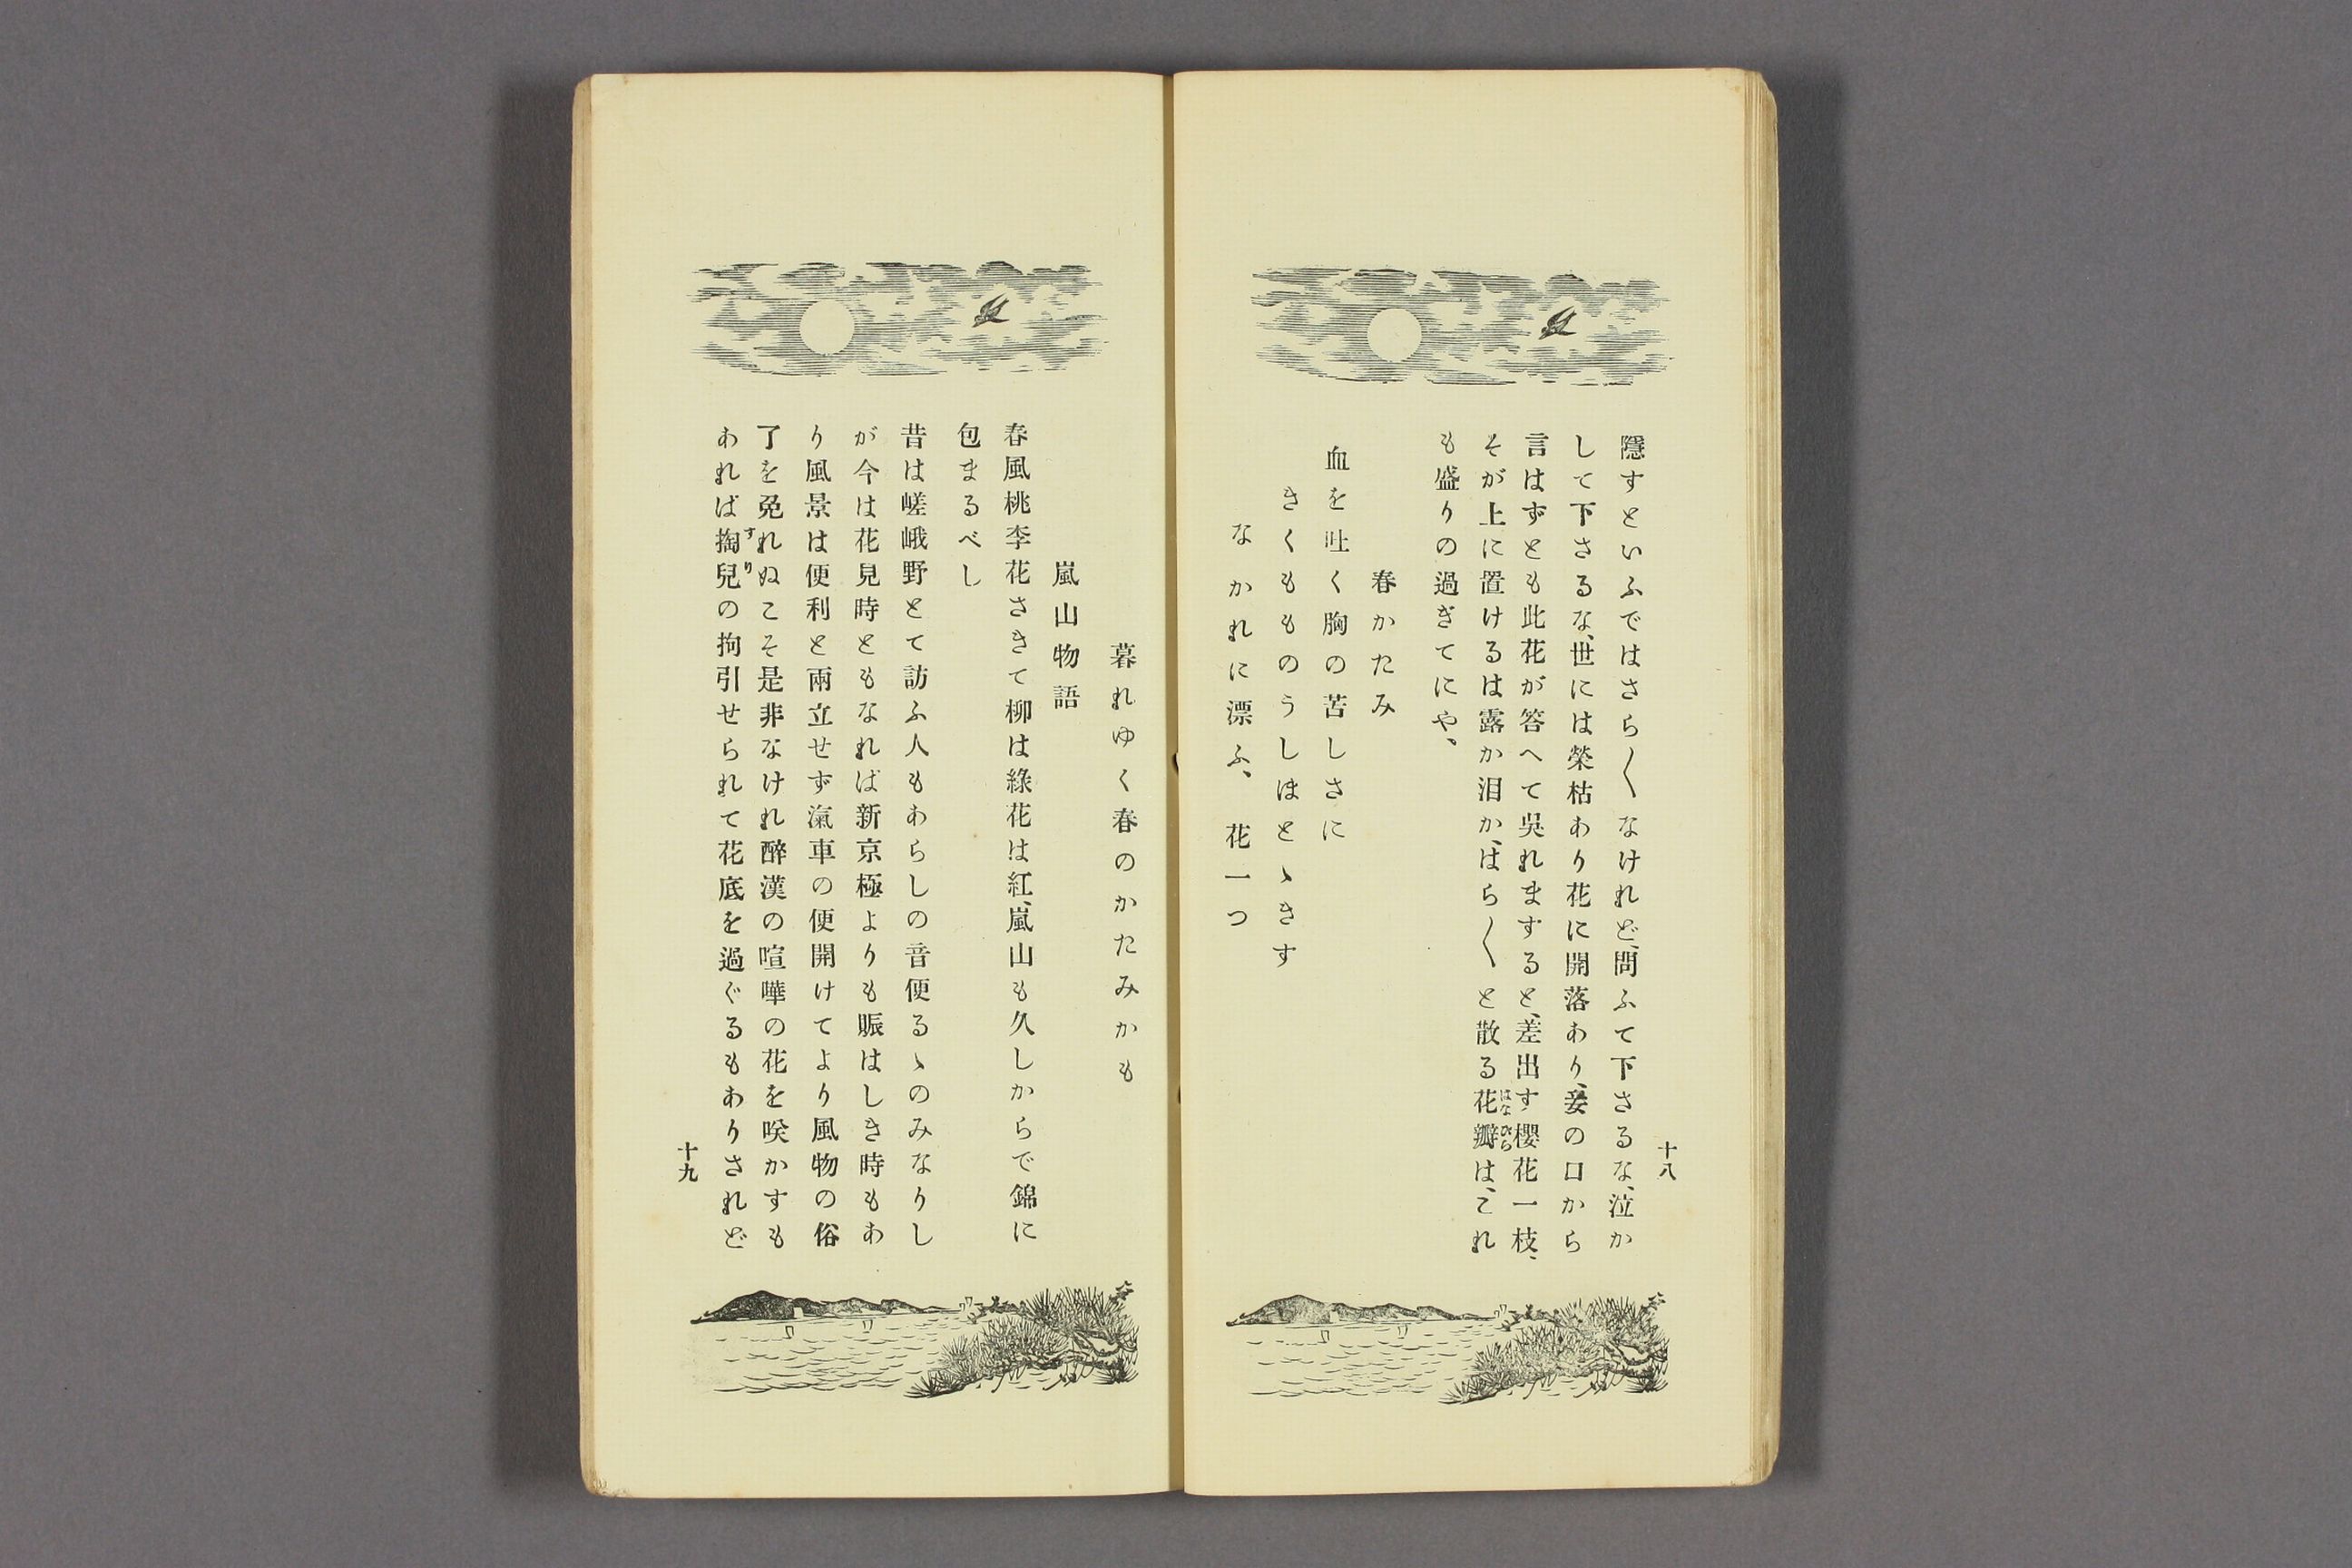 隱すといふではさら〳〵なけれど、問ふて下さるな、泣か
して下さるな、世には榮枯あり花に開落あり、妾の口から
言はずとも此花が答へて吳れますると、差出す櫻花一枝、
そが上に置けるは露か泪か、はら〳〵と散る花瓣は、これ
はなびら
も盛りの過ぎてにや、
春かたみ
血を吐く胸の苦しさに
きくもものうしほとゝきす
なかれに漂ふ、花一つ
十八
暮れゆく春のかたみかも
嵐山物語
春風桃李花さきて柳は綠花は紅、嵐山も久しからで錦に
包まるべし
昔は嵯峨野とて訪ふ人もあらしの音便るゝのみなりし
が今は花見時ともなれば新京極よりも賑はしき時もあ
り風景は便利と兩立せず滊車の便開けてより風物の俗
了を免れぬこそ是非なけれ醉漢の喧嘩の花を咲かすも
あれば掏兒の拘引せられて花底を過ぐるもありされど
すり
十九